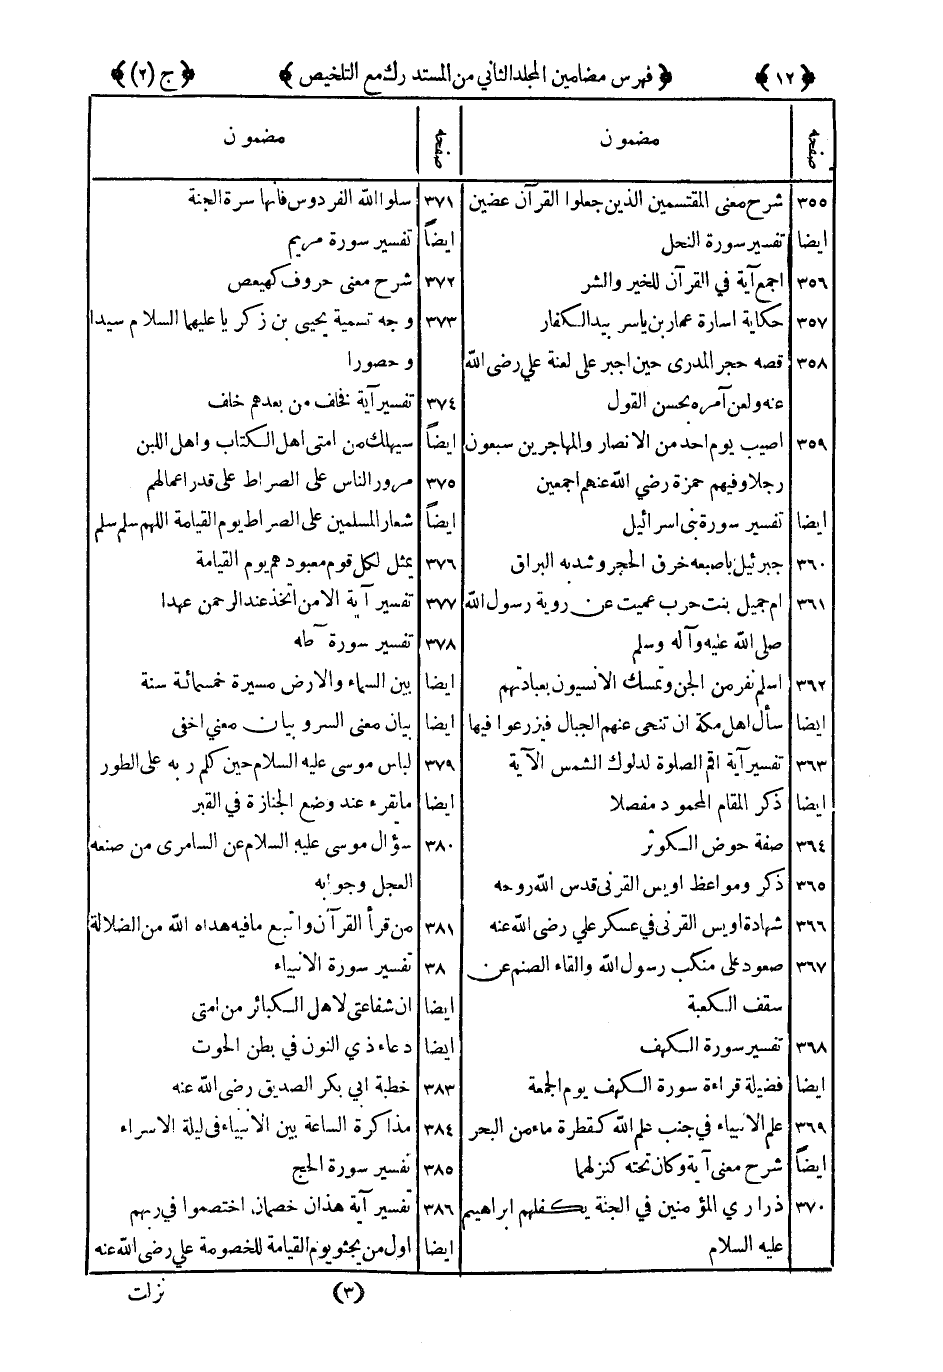 ﴿ ١٢ ﴾ ﴿ فهرس مضامين المجلد الثاني من المستدرك مع التلخيص ﴾ ﴿ ج (٢) ﴾
صفحه مضمون
٣٥٥ شرح معنى المقتسمين الذين جعلوا القرآن عضين
ايضا تفسير سورة النحل
٣٥٦ اجمع آية في القرآن للخير والشر
٣٥٧ حكاية اسارة عمار بن ياسر بيد الكفار
٣٥٨ قصه حجر المدرى حين اجبر على لعنة علي رضى الله
عنه ولعن آمره بحسن القول
٣٥٩ اصيب يوم احد من الانصار والمهاجرين سبعون
رجلا وفيهم حمزة رضي الله عنهم اجمعين
ايضا تفسير سورة بنى اسرائيل
٣٦٠ جبرئيل باصبعه خرق الحجر وشد به البراق
٣٦١ ام جميل بنت حرب عميت عن روية رسول الله
صلى الله عليه وآله وسلم
٣٦٢ اسلم نفر من الجن وتمسك الانسيون بعبادتهم
ايضا سأل اهل مكة ان تنحى عنهم الجبال فيزرعوا فيها
٣٦٣ تفسير آية اقم الصلوة لدلوك الشمس الآية
ايضا ذكر المقام المحمود مفصلا
٣٦٤ صفة حوض الكوثر
٣٦٥ ذكر ومواعظ اويس القرنى قدس الله روحه
٣٦٦ شهادة اويس القرنى في عسكر علي رضى الله عنه
٣٦٧ صعود على منكب رسول الله والقاء الصنم عن
سقف الكعبة
٣٦٨ تفسير سورة الكهف
ايضا فضيلة قراءة سورة الكهف يوم الجمعة
٣٦٩ علم الانبياء في جنب علم الله كقطرة ماء من البحر
ايضاً شرح معنى آية وكان تحته كنز لهما
٣٧٠ ذراري المؤمنين في الجنة يكفلهم ابراهيم
عليه السلام
صفحه مضمون
٣٧١ سلوا الله الفردوس فانها سرة الجنة
ايضاً تفسير سورة مريم
٣٧٢ شرح معنى حروف كهيعص
٣٧٣ وجه تسمية يحيى بن زكريا عليهما السلام سيدا
و حصورا
٣٧٤ تفسير آية فخلف من بعدهم خلف
ايضاً سيهلك من امتى اهل الكتاب واهل اللبن
٣٧٥ مرور الناس على الصراط على قدر اعمالهم
ايضاً شعار المسلمين على الصراط يوم القيامة اللهم سلم سلم
٣٧٦ يمثل لكل قوم معبودهم يوم القيامة
٣٧٧ تفسير آية الا من اتخذ عند الرحمن عهدا
٣٧٨ تفسير سورة طه
ايضا بين السماء والارض مسيرة خمسمائة سنة
ايضا بيان معنى السر وبيان معنى اخفى
٣٧٩ لباس موسى عليه السلام حين كلم ربه على الطور
ايضا ما يقرء عند وضع الجنازة في القبر
٣٨٠ سؤال موسى عليه السلام عن السامرى من صنعه
العجل وجوابه
٣٨١ من قرأ القرآن واتبع ما فيه هداه الله من الضلالة
٣٨ تفسير سورة الانبياء
ايضا ان شفاعتى لاهل الكبائر من امتى
ايضا دعاء ذي النون في بطن الحوت
٣٨٣ خطبة ابي بكر الصديق رضى الله عنه
٣٨٤ مذاكرة الساعة بين الانبياء فى ليلة الاسراء
٣٨٥ تفسير سورة الحج
٣٨٦ تفسير آية هذان خصمان اختصموا في ربهم
ايضا اول من يجثو يوم القيامة للخصومة علي رضى الله عنه
(٣) نزلت